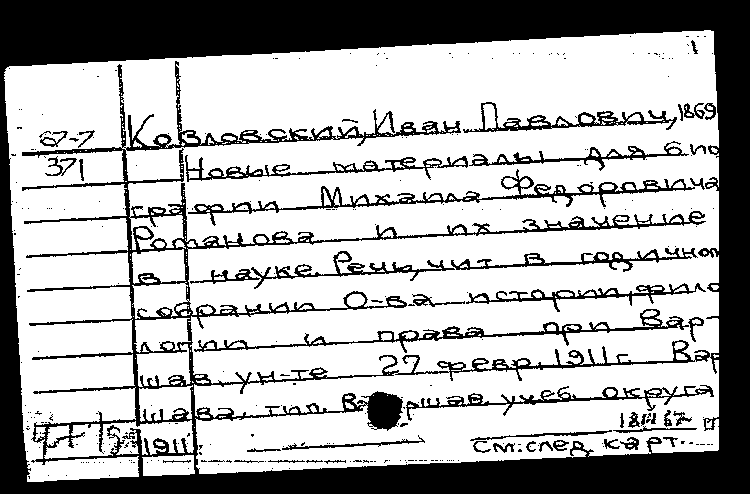 1
67-7 Козловский, Иван Павлович, 1869
371 Новые материалы для био
графии Михаила Федоровича
Романова и их значение
в науке. Речь, чит. в годичном
собрании О-ва истории, фило
логии и права при Вар-
шав. ун-те 27 февр. 1911 г. Вар
шава, тип. Варшав. учеб. округа
1911.
см. след. карт.